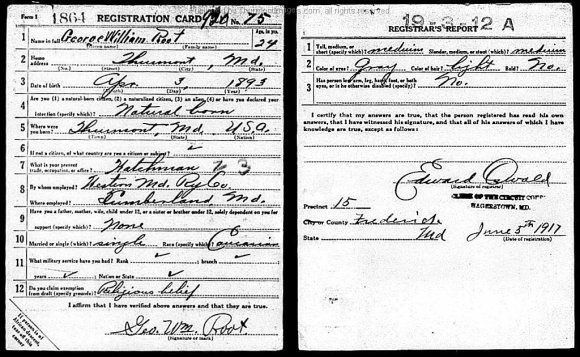 Form 1 1864 REGISTRATION CARD 920 No. 75
1 Name in full George William Root Age, in yrs. 24
2 Home address Thurmont, Md.
3 Date of birth Apr. 3, 1893
4 Are you (1) a natural-born citizen, (2) a naturalized citizen, (3) an alien, (4) or have you declared your
intention (specify which)? Natural born
5 Where were you born? Thurmont, Md. U.S.A.
6 If not a citizen, of what country are you a citizen or subject?
7 What is your present trade, occupation, or office? Watchman 23
8 By whom employed? Western Md. Ry. Co.
Where employed? Cumberland Md.
9 Have you a father, mother, wife, child under 12, or a sister or brother under 12, solely dependent on you for
support (specify which)? None
10 Married or single (which)? single Race (specify which)? Caucasian
11 What military service have you had? Rank ; branch
years ; Nation or State
12 Do you claim exemption from draft (specify grounds)? Religious belief
I affirm that I have verified above answers and that they are true.
Geo. Wm. Root
(Signature or mark)
19-3-12 A
REGISTRAR'S REPORT
1 Tall, medium, or short (specify which)? medium Slender, medium, or stout (which)? medium
2 Color of eyes? Gray Color of hair? light Bald? No.
3 Has person lost arm, leg, hand, foot, or both
eyes, or is he otherwise disabled (specify)? No.
I certify that my answers are true, that the person registered has read his own
answers, that I have witnessed his signature, and that all of his answers of which I have
knowledge are true, except as follows:
Edward Oswald
(Signature of registrar)
CLERK OF THE CIRCUIT COURT
HAGERSTOWN, MD.
Precinct 15
City or County Frederick
State Md June 5th 1917
(Date of registration)